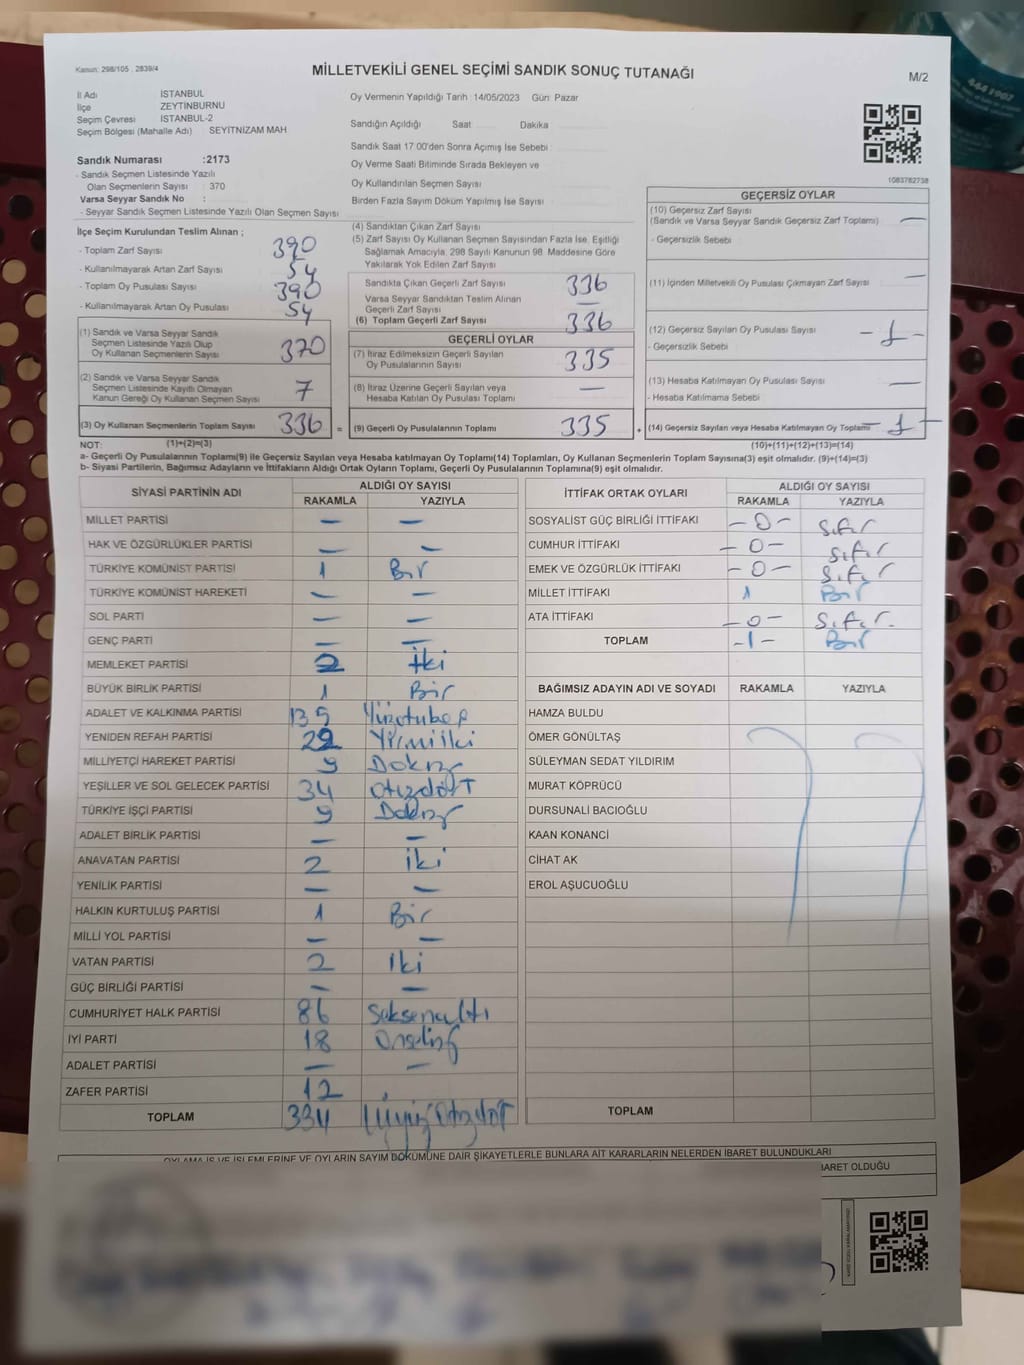 Kanun: 298/105 , 2839/4
MİLLETVEKİLİ GENEL SEÇİMİ SANDIK SONUÇ TUTANAĞI
M/2
İl Adı İSTANBUL
İlçe ZEYTİNBURNU
Seçim Çevresi İSTANBUL-2
Seçim Bölgesi (Mahalle Adı) SEYİTNİZAM MAH
Oy Vermenin Yapıldığı Tarih : 14/05/2023 Gün: Pazar
Sandığın Açıldığı Saat Dakika
Sandık Saat 17:00'den Sonra Açımış İse Sebebi
Oy Verme Saati Bitiminde Sırada Bekleyen ve
Oy Kullandırılan Seçmen Sayısı
Birden Fazla Sayım Döküm Yapılmış İse Sayısı
1083782738
Sandık Numarası :2173
- Sandık Seçmen Listesinde Yazılı
Olan Seçmenlerin Sayısı : 370
Varsa Seyyar Sandık No :
- Seyyar Sandık Seçmen Listesinde Yazılı Olan Seçmen Sayısı
İlçe Seçim Kurulundan Teslim Alınan ;
- Toplam Zarf Sayısı 390
- Kullanılmayarak Artan Zarf Sayısı 54
- Toplam Oy Pusulası Sayısı 390
- Kullanılmayarak Artan Oy Pusulası 54
(1) Sandık ve Varsa Seyyar Sandık
Seçmen Listesinde Yazılı Olup
Oy Kullanan Seçmenlerin Sayısı 370
(2) Sandık ve Varsa Seyyar Sandık
Seçmen Listesinde Kayıtlı Olmayan
Kanun Gereği Oy Kullanan Seçmen Sayısı 7
(3) Oy Kullanan Seçmenlerin Toplam Sayısı 336 =
(4) Sandıktan Çıkan Zarf Sayısı
(5) Zarf Sayısı Oy Kullanan Seçmen Sayısından Fazla İse, Eşitliği
Sağlamak Amacıyla, 298 Sayılı Kanunun 98. Maddesine Göre
Yakılarak Yok Edilen Zarf Sayısı
Sandıkta Çıkan Geçerli Zarf Sayısı 336
Varsa Seyyar Sandıktan Teslim Alınan
Geçerli Zarf Sayısı —
(6) Toplam Geçerli Zarf Sayısı 336
GEÇERLİ OYLAR
(7) İtiraz Edilmeksizin Geçerli Sayılan
Oy Pusulalarının Sayısı 335
(8) İtiraz Üzerine Geçerli Sayılan veya
Hesaba Katılan Oy Pusulası Toplamı —
(9) Geçerli Oy Pusulalarının Toplamı 335 +
GEÇERSİZ OYLAR
(10) Geçersiz Zarf Sayısı
(Sandık ve Varsa Seyyar Sandık Geçersiz Zarf Toplamı) —
- Geçersizlik Sebebi
(11) İçinden Milletvekili Oy Pusulası Çıkmayan Zarf Sayısı —
(12) Geçersiz Sayılan Oy Pusulası Sayısı - 1 -
- Geçersizlik Sebebi
(13) Hesaba Katılmayan Oy Pusulası Sayısı —
- Hesaba Katılmama Sebebi
(14) Geçersiz Sayılan veya Hesaba Katılmayan Oy Toplamı - 1 -
NOT: (1)+(2)=(3) (10)+(11)+(12)+(13)=(14)
a- Geçerli Oy Pusulalarının Toplamı(9) ile Geçersiz Sayılan veya Hesaba katılmayan Oy Toplamı(14) Toplamları, Oy Kullanan Seçmenlerin Toplam Sayısına(3) eşit olmalıdır. (9)+(14)=(3)
b- Siyasi Partilerin, Bağımsız Adayların ve İttifakların Aldığı Ortak Oyların Toplamı, Geçerli Oy Pusulalarının Toplamına(9) eşit olmalıdır.
SİYASİ PARTİNİN ADI ALDIĞI OY SAYISI
RAKAMLA YAZIYLA
MİLLET PARTİSİ — —
HAK VE ÖZGÜRLÜKLER PARTİSİ — —
TÜRKİYE KOMÜNİST PARTİSİ 1 Bir
TÜRKİYE KOMÜNİST HAREKETİ — —
SOL PARTİ — —
GENÇ PARTİ — —
MEMLEKET PARTİSİ 2 İki
BÜYÜK BİRLİK PARTİSİ 1 Bir
ADALET VE KALKINMA PARTİSİ 135
YENİDEN REFAH PARTİSİ 22 Yirmiiki
MİLLİYETÇİ HAREKET PARTİSİ 9 Dokuz
YEŞİLLER VE SOL GELECEK PARTİSİ 34 otuzdört
TÜRKİYE İŞÇİ PARTİSİ 9 Dokuz
ADALET BİRLİK PARTİSİ — —
ANAVATAN PARTİSİ 2 iki
YENİLİK PARTİSİ — —
HALKIN KURTULUŞ PARTİSİ 1 Bir
MİLLİ YOL PARTİSİ — —
VATAN PARTİSİ 2 iki
GÜÇ BİRLİĞİ PARTİSİ — —
CUMHURİYET HALK PARTİSİ 86 Seksenaltı
İYİ PARTİ 18 Onsekiz
ADALET PARTİSİ — —
ZAFER PARTİSİ 12
TOPLAM 334 Üçyüzotuzdört
İTTİFAK ORTAK OYLARI ALDIĞI OY SAYISI
RAKAMLA YAZIYLA
SOSYALİST GÜÇ BİRLİĞİ İTTİFAKI - 0 - Sıfır
CUMHUR İTTİFAKI - 0 - Sıfır
EMEK VE ÖZGÜRLÜK İTTİFAKI - 0 - Sıfır
MİLLET İTTİFAKI 1 Bir
ATA İTTİFAKI - 0 - Sıfır
TOPLAM - 1 - Bir
BAĞIMSIZ ADAYIN ADI VE SOYADI RAKAMLA YAZIYLA
HAMZA BULDU
ÖMER GÖNÜLTAŞ
SÜLEYMAN SEDAT YILDIRIM
MURAT KÖPRÜCÜ
DURSUNALİ BACIOĞLU
KAAN KONANCİ
CİHAT AK
EROL AŞUCUOĞLU
TOPLAM
OYLAMA İŞ VE İŞLEMLERİNE VE OYLARIN SAYIM DÖKÜMÜNE DAİR ŞİKAYETLERLE BUNLARA AİT KARARLARIN NELERDEN İBARET BULUNDUKLARI
BARET OLDUĞU
444 1907